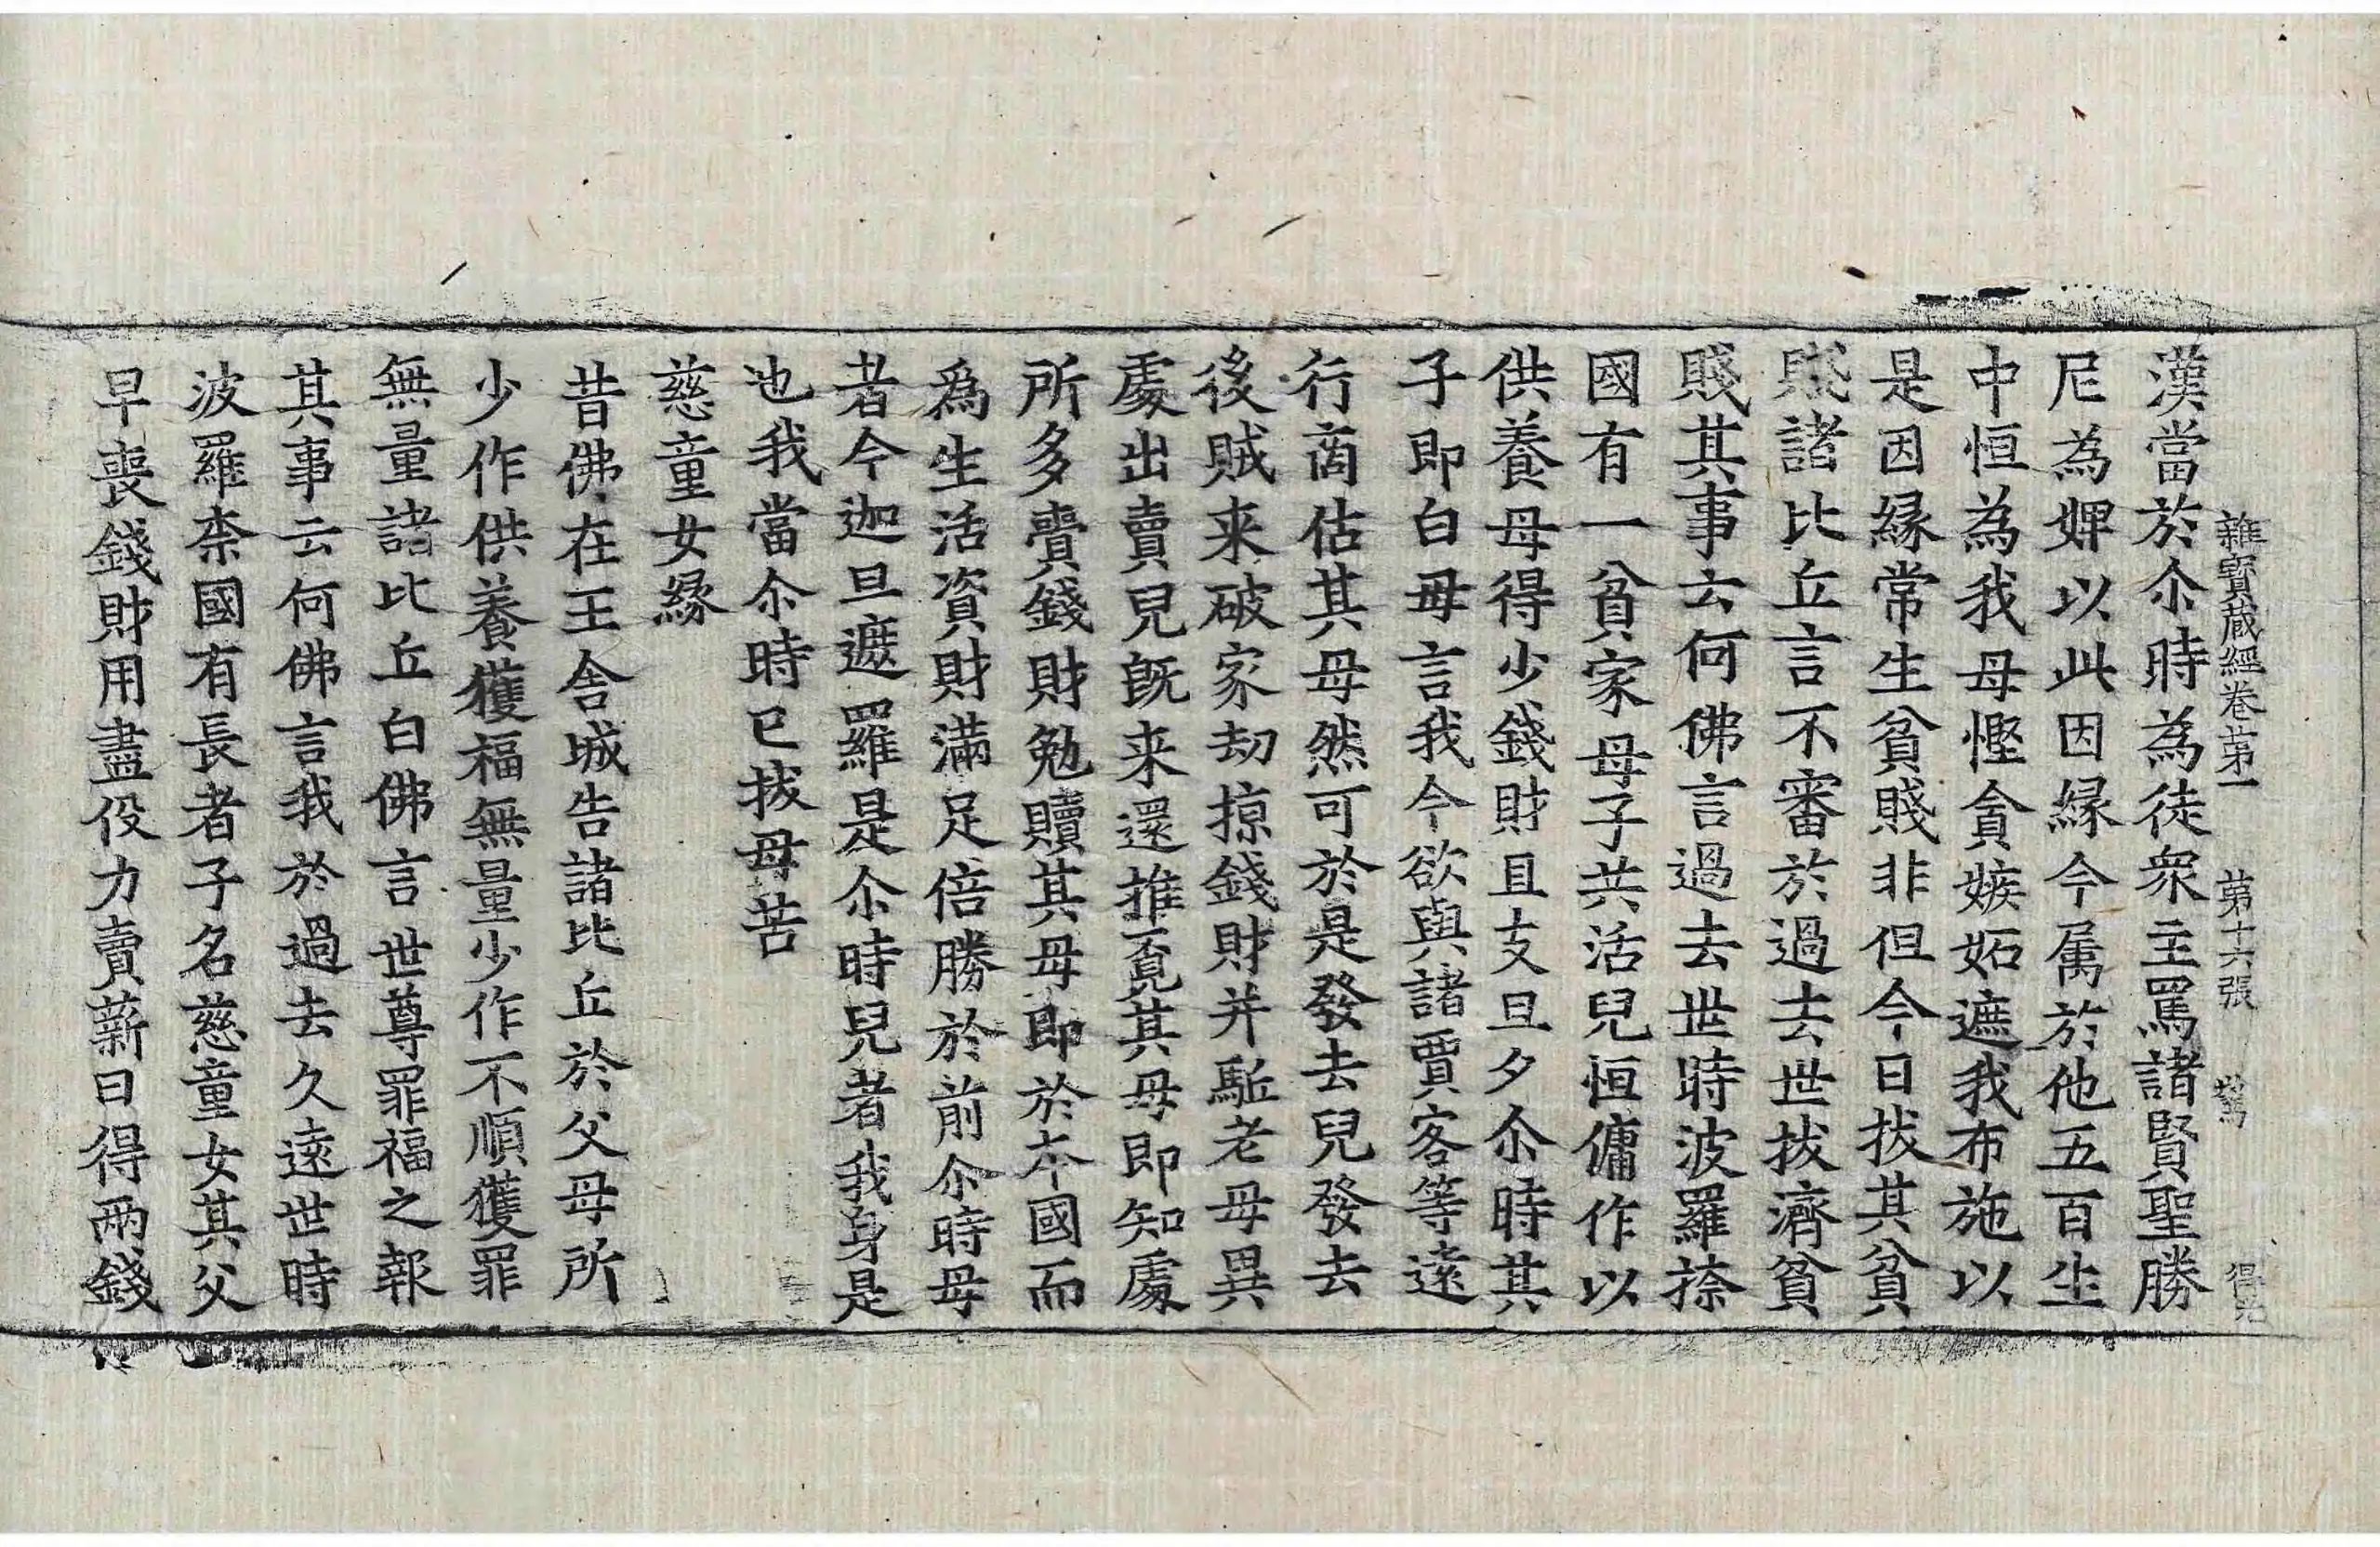 雜寶蔵經卷苐一　苐十六張　鷔　得兊
漢當於尒時為徒衆主罵諸賢聖勝
尼為婢以此因緣今属於他五百生
中恒為我母慳貪嫉妬遮我布施以
是因緣常生貧賤非但今日拔其貧
賤諸比丘言不審於過去世拔濟貧
賤其事云何佛言過去世時波羅捺
國有一貧家母子共活兒恒傭作以
供養母得少錢財且支旦夕尒時其
子即白母言我今欲與諸賈客等遠
行商估其母然可於是發去兒發去
後賊来破家劫掠錢財并駈老母異
處出賣兒旣来還推覔其母即知處
所多賫錢財勉贖其母即於夲國而
爲生活資財滿足倍勝於前尒時母
者今迦旦遮羅是尒時兒者我身是
也我當尒時已拔母苦
慈童女緣
昔佛在王舍城告諸比丘於父母所
少作供養獲福無量少作不順獲罪
無量諸比丘白佛言世尊罪福之報
其事云何佛言我於過去久遠世時
波羅柰國有長者子名慈童女其父
早喪錢財用盡伇力賣薪日得兩錢